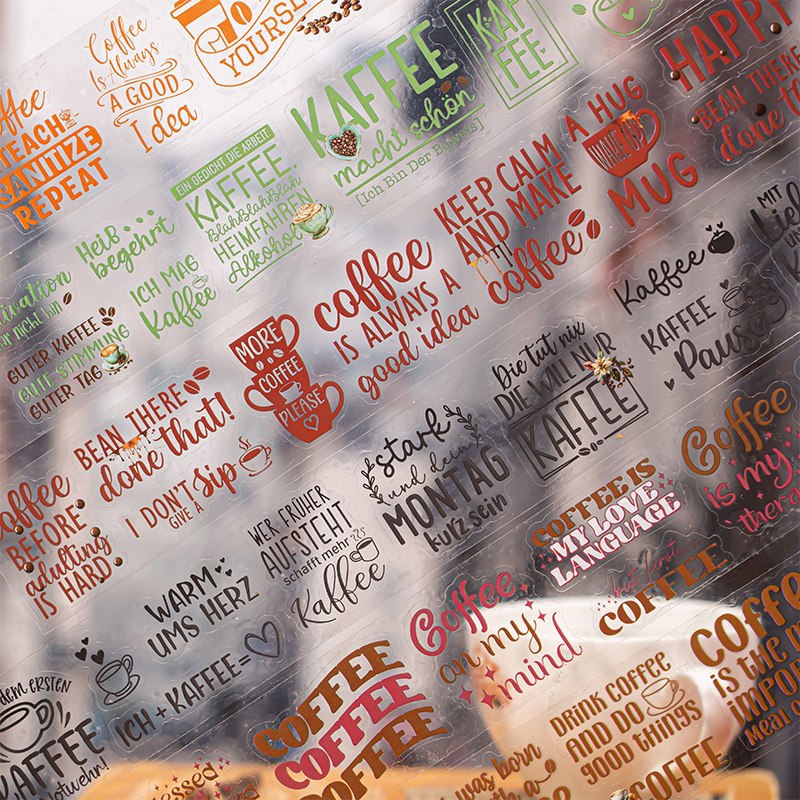 YOURSELF
Coffee
Is Always
A GOOD
Idea
TEACH
SANITIZE
REPEAT
KAF
FEE
KAFFEE
macht schön
[Ich Bin Der Beweis]
EIN GEDICHT DIE ARBEIT:
KAFFEE
BlahBlahBlah
HEIMFAHREN
Alkohol
Heiß
begehrt
ICH MAG
Kaffee
GUTER KAFFEE
GUTE STIMMUNG
GUTER TAG
HAPPY
BEAN THERE
done
A HUG
WAKE UP
MUG
KEEP CALM
AND MAKE
coffee
coffee
IS ALWAYS A
good idea
MORE
COFFEE
PLEASE
BEAN THERE
done that!
I DON'T
GIVE A
Sip
BEFORE
adulting
IS HARD
MIT
Kaffee
KAFFEE
Pause
Die tut nix
DIE WILL NUR
KAFFEE
stark
und dein
MONTAG
kurz sein
WER FRÜHER
AUFSTEHT
schafft mehr
Kaffee
WARM
UMS HERZ
ICH + KAFFEE =
dem ERSTEN
KAFFEE
Notwehr!
Coffee
is my
COFFEE IS
MY LOVE
LANGUAGE
but first
COFFEE
Coffee
on my
mind
COFFEE
COFFEE
COFFEE
is the
DRINK COFFEE
AND DO
good things
was born
with a
COFFEE